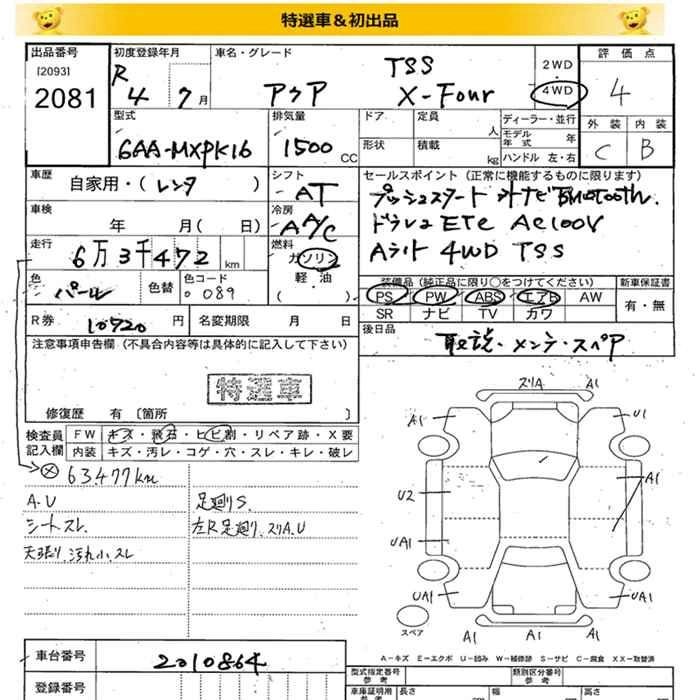 特選車＆初出品
出品番号
[2093]
2081
初度登録年月
R 4 7月
車名・グレード
アクア
TSS
X-Four
2WD
4WD
評価点
4
外装 内装
C B
型式
6AA-MXPK16
排気量
1500 CC
ドア 定員 人
形状 積載 kg
ディーラー・並行
モデル年式 年
ハンドル 左・右
車歴
自家用・(レンタ)
シフト
AT
セールスポイント(正常に機能するものに限ります)
プッシュスタート ナビ Bluetooth.
ドラレコ ETC AC100V
Aライト 4WD TSS
車検
年 月( 日)
冷房
AA/C
走行
6万3千472km
燃料
ガソリン
軽・油
( )
色
パール
色替
色コード
089
装備品(純正品に限り○をつけてください)
PS PW ABS エアB AW
SR ナビ TV カワ
新車保証書
有・無
R券 10720円
名変期限 月 日
後日品
取説・メンテ・スペア
注意事項申告欄(不具合内容等は具体的に記入して下さい)
特選車
修復歴 有 〔箇所 〕
検査員記入欄
FW キズ・飛石・ヒビ割・リペア跡・X要
内装 キズ・汚レ・コゲ・穴・スレ・キレ・破レ
63477km
A.U
シートスレ
天張り.汚れ小.スレ
足廻りS.
左R足廻り.スリA.U
スリA A1
A1 U1
A1
U2
UA1
UA1 UA1
A1 A1
スペア
A−キズ E−エクボ U−凹み W−補修跡 S−サビ C−腐食 XX−取替済
車台番号
2010864
登録番号
型式指定番号
参考
類別区分番号
参考
車庫証明用
参考
長さ 幅 高さ